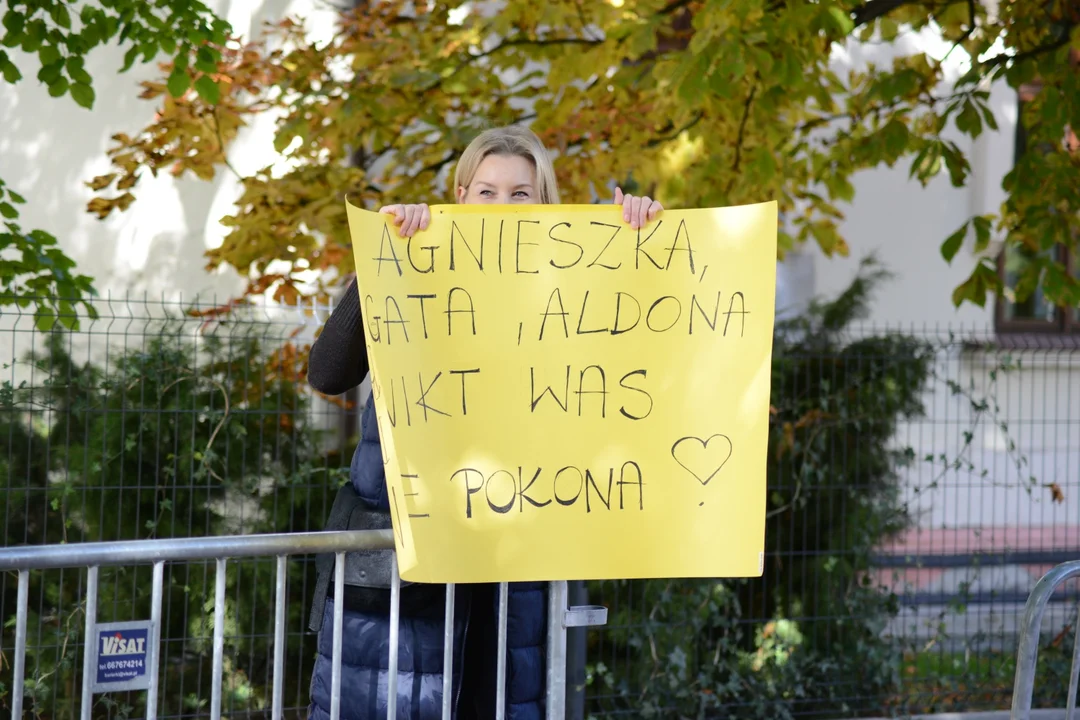 AGNIESZKA,
GATA , ALDONA
NIKT WAS
IE POKONA
VISAT
tel. 667674214